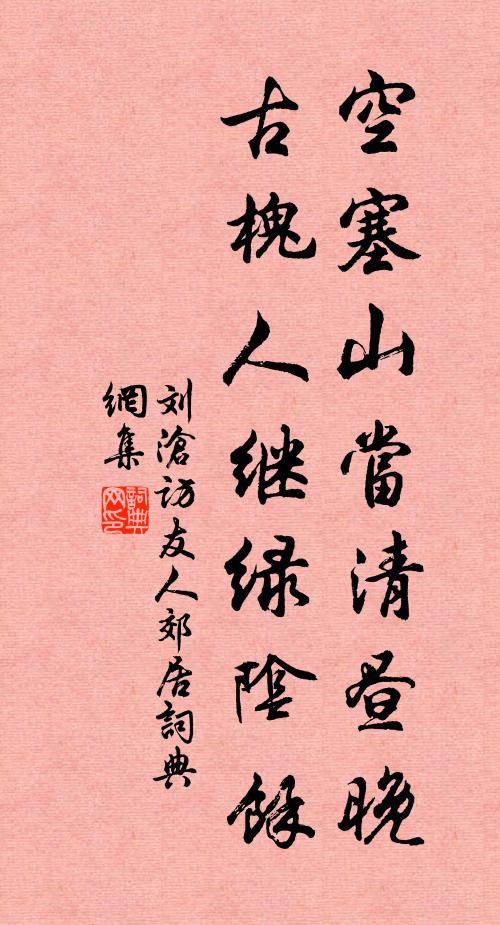 空塞山當清昼晚
古槐人继绿陰馀
刘滄访友人郊居詞典
網集
詞典
网印